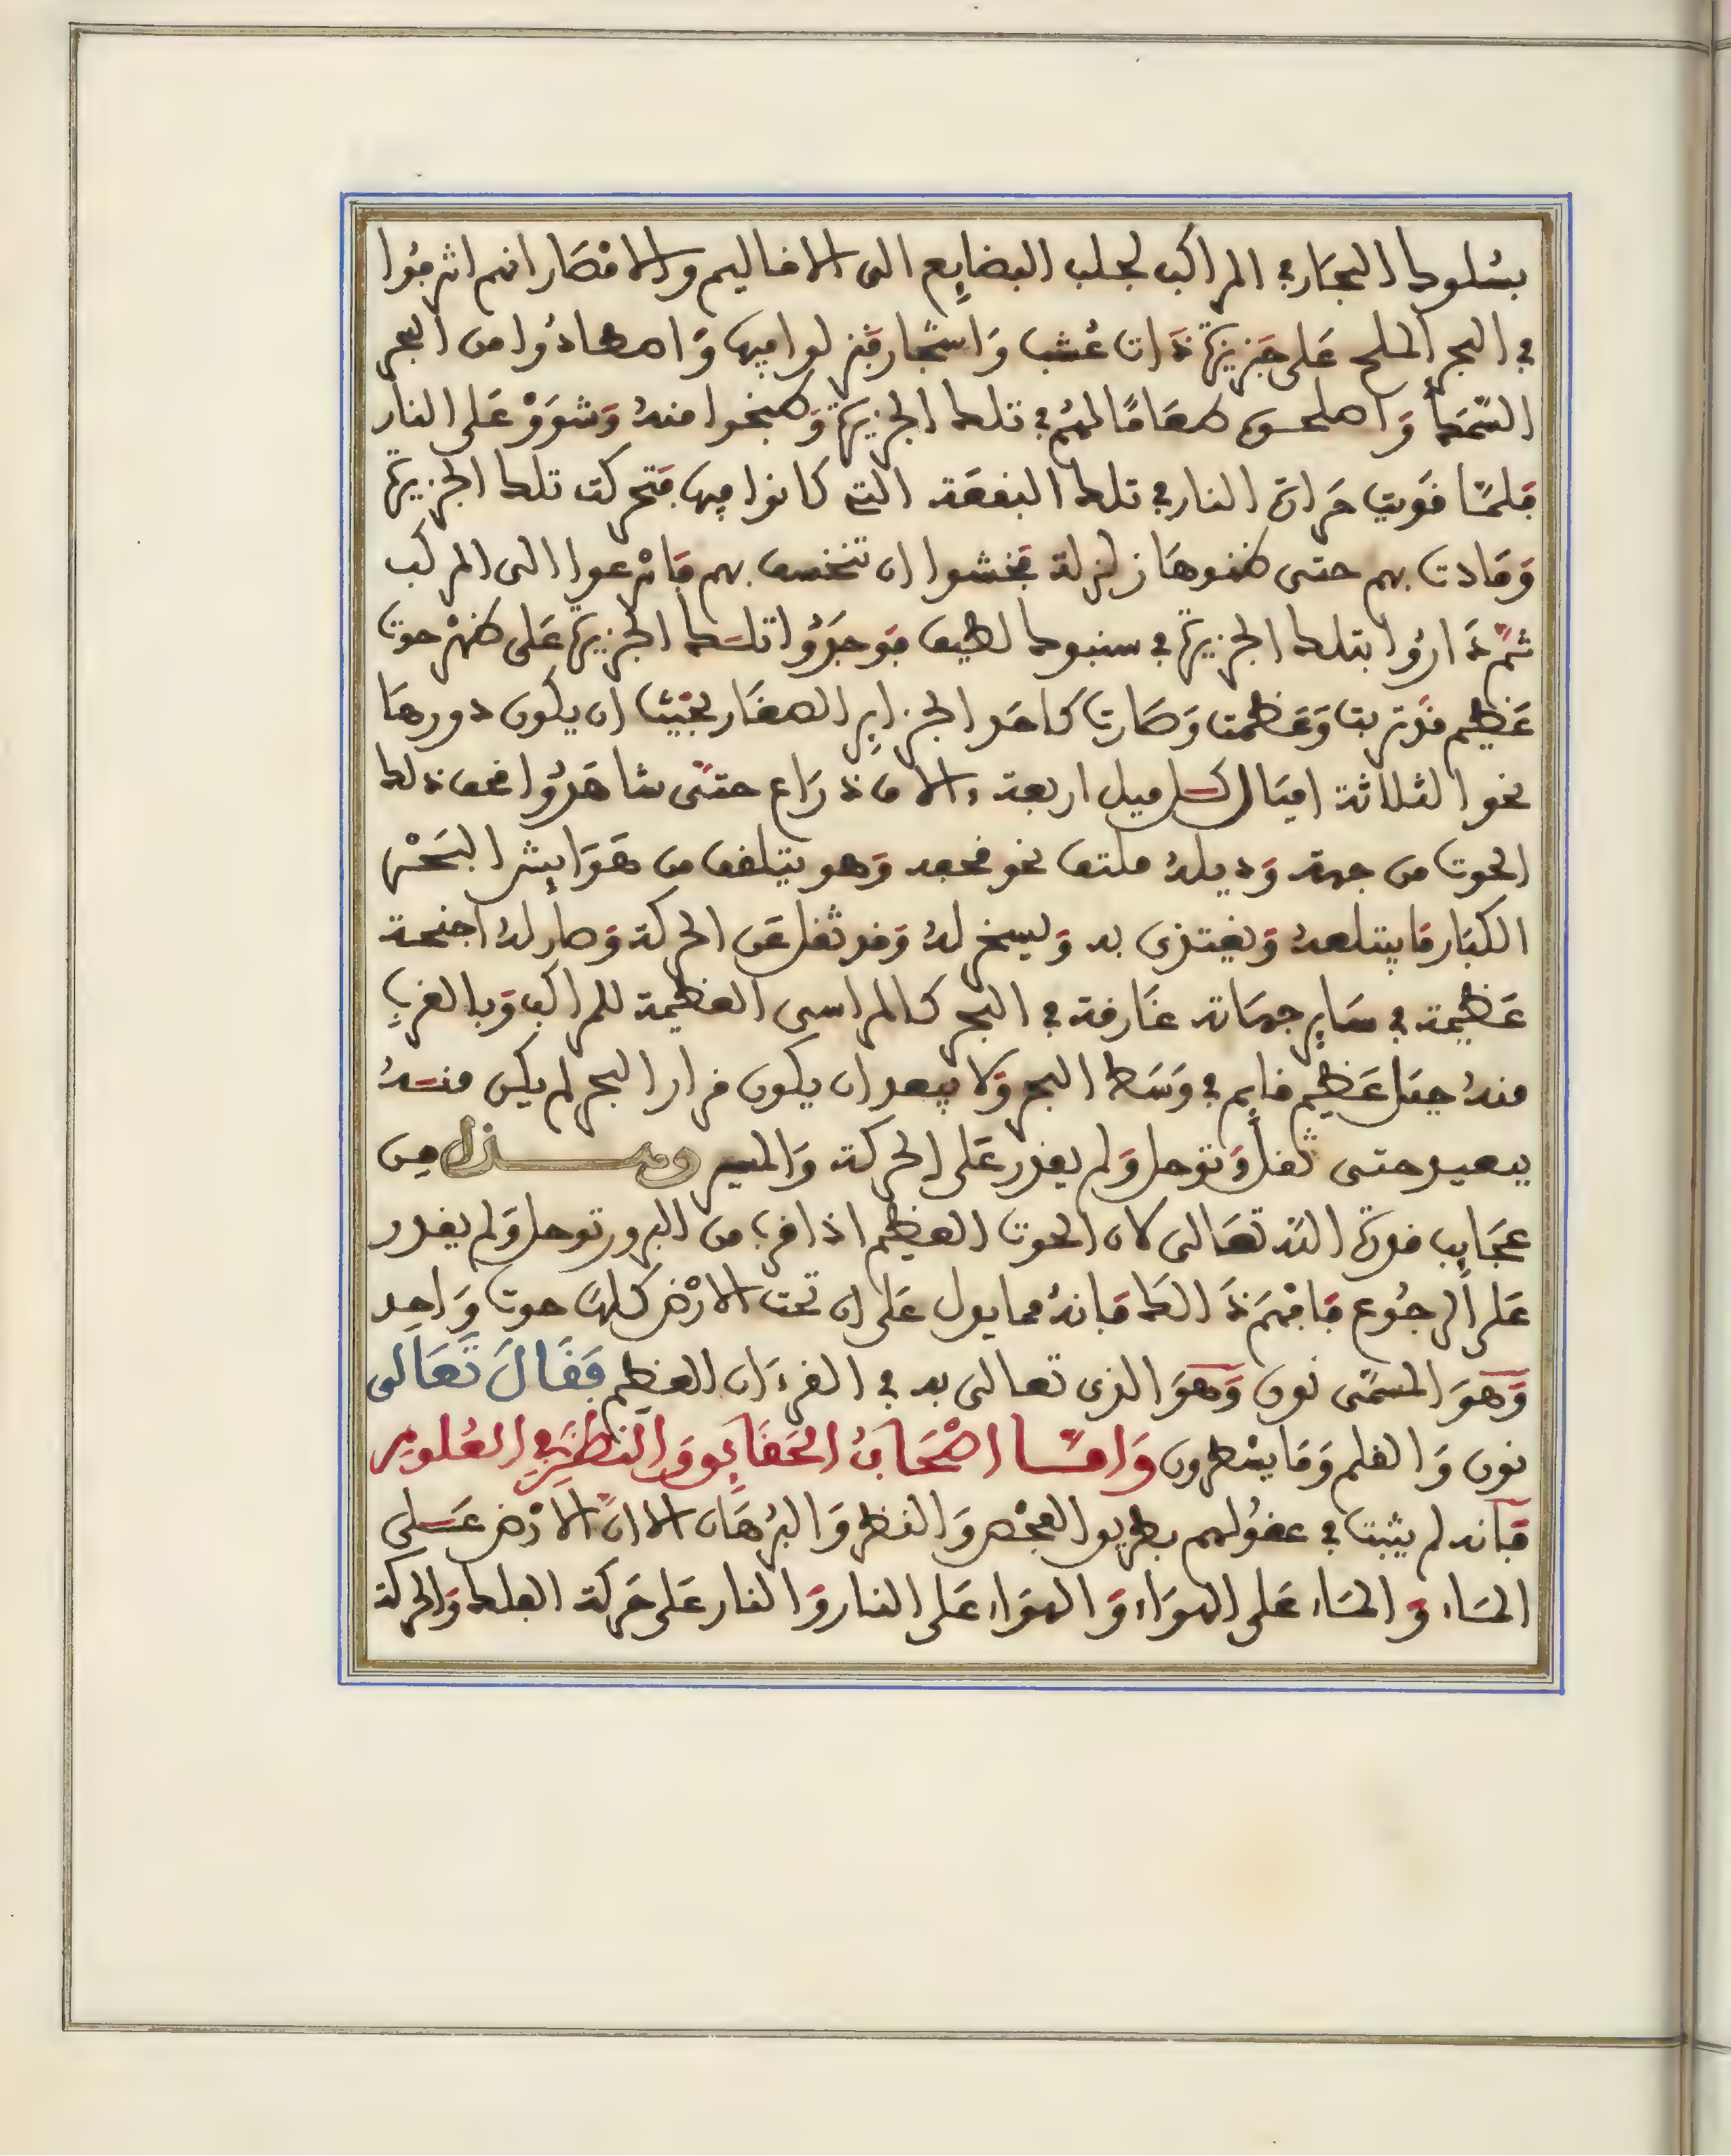 بسُلوك البحَار في المراكب لجلب البضايِع الى الاقاليم والامْصَار انهم اشرفُوا
في البحر الملح عَلى جَزيرَة ذَات عُشب وَاشجَار فنزلوا فيها وَاصطادُوا من البحر
السّمَك وَاصلحوا طعَامًا لهُم في تلك الجزيرَة وَطبخوا منهُ وَشوَوْ عَلى النار
فلمّا قَويت حَرارة النار في تلك البقعَة التي كانوا فيها فتحركت تلك الجزيرَة
وَمَادت بهم حتى ظنوهَا زلزلة فخشوا ان تنخسف بهم فانْرعوا الى المركب
ثمّ دَارُوا بتلك الجزيرَة في سنبوك لطيف فوَجَدُوا تلك الجزيرَة عَلى ظهْر حوت
عَظيم قد تربت وَعَظمت وَصَارت كاحَد الجزاير الصغَار بحَيْث ان يكون دورهَا
نحو الثلاثة اميَال كل ميل اربعة ءالاف ذرَاع حتّى شاهَدُوا فم ذلك
الحوت من جهة وَديلهُ ملتف نحو فمه وَهو يتلقف من هَوَايش البَحْر
الكبَار مَا يبتلعهُ وَيغتذى به وَليسخ لهُ وَقد ثقل عَن الحركة وَصار لهُ اجنحة
عَظيمة في سَاير جهَاته غَارقة في البحر كالمراسى العظيمة للمراكب وَبالقرب
منهُ جبَل عَظيم قايم في وَسَط البحر وَلا يبعد ان يكون قرار البحر لم يكن منهُ
ببعيد حتى ثقل وَتوحل وَلم يقدر عَلى الحركة وَالسير وهذا من
عجَايب قدرَة الله تعَالى لان الحوت العظيم اذا قرب من البر ورتوحل وَلم يقدر
عَلى الرجُوع فافهَم ذَالك فانهُ مما يدل عَلى ان تحت الارْض كلهَا حوت وَاحِد
وَهوَ المسمّى نون وَهوَ الذى تعالى به في القرءَان العظيم فَقَالَ تَعَالى
نون وَالقلم وَمَا يسْطرون وَامّا اصْحَابُ الحَقَايِق وَالنَظَر في العُلوم
فانه لم يثبت في عقوُلهم بطريق الفحْص وَالنظر وَالبُرهَان الا انّ الارْض عَلى
المَاء وَالمَاء عَلى الهوَاء وَالهوَاء عَلى النار وَالنار عَلى حَركة الفلك وَالحركة